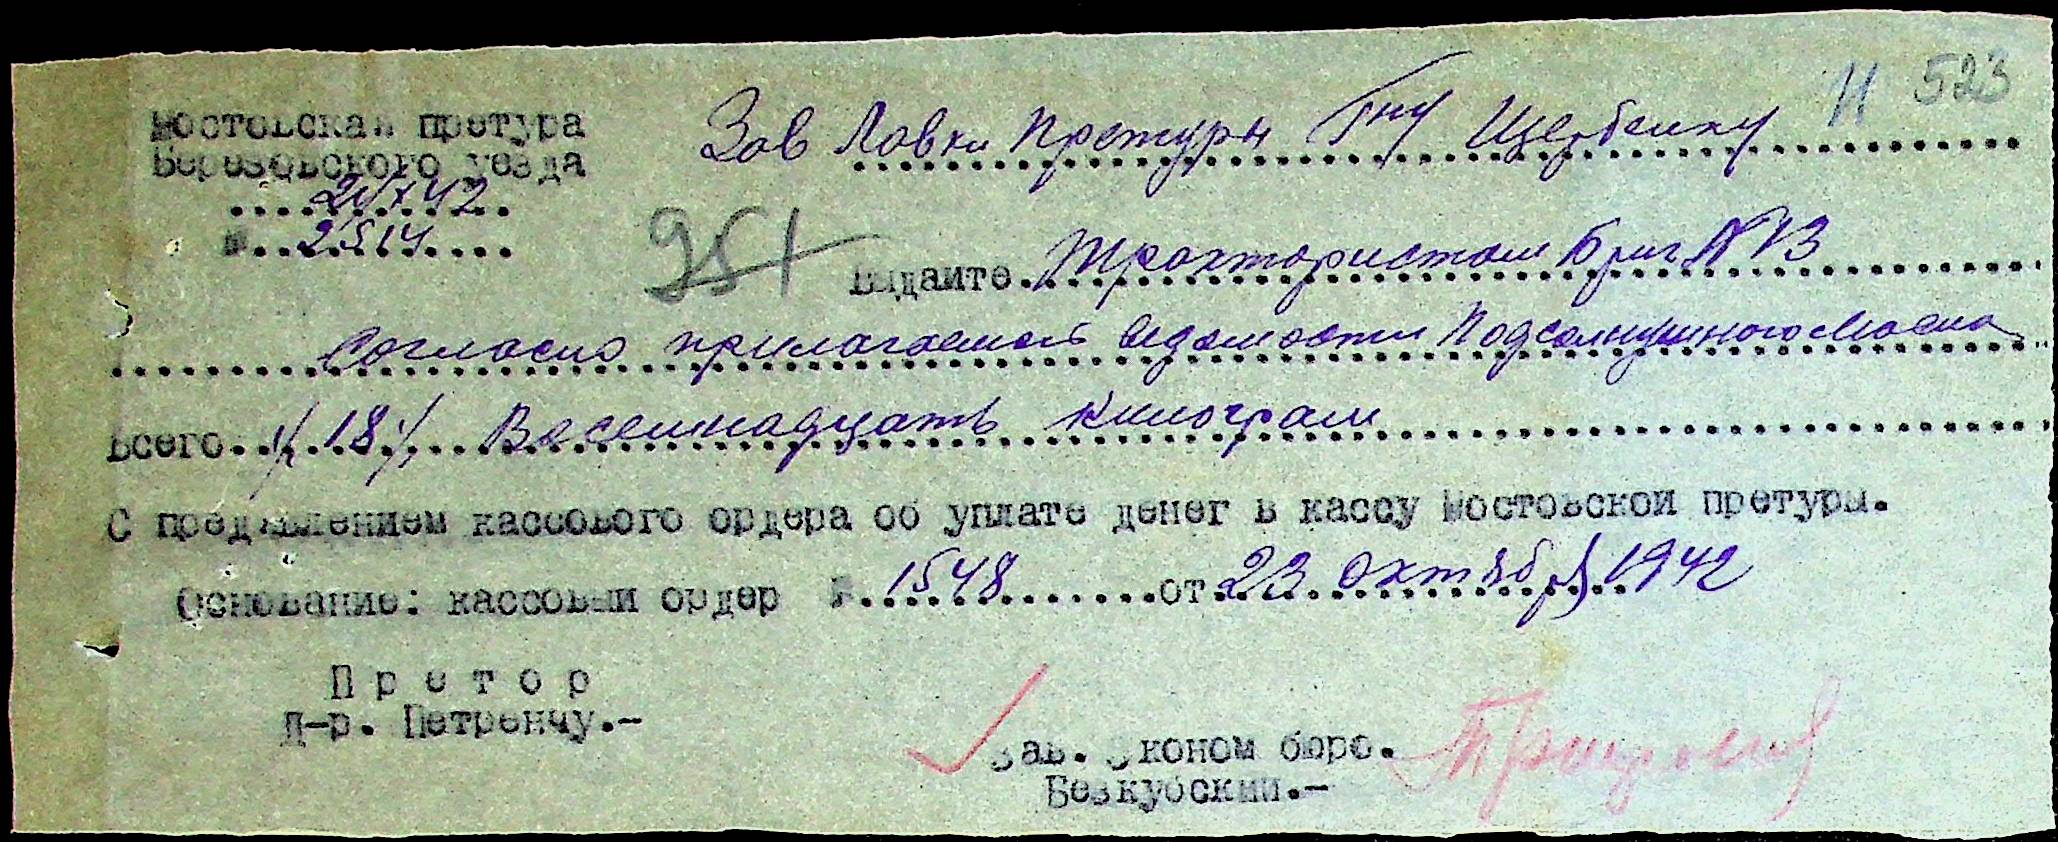 Н 523
Мостовская претура
Зав Лавки Претуры Гну Щербенку
Березовского уезда
24/X 42
№ 2514
951
Выдайте Трахтористам Бриг №13
Согласно прилагаемой ведомости Подсолнушного Масла
Всего /18/ Восемнадцать килограм
С предъявлением кассового ордера об уплате денег в кассу Мостовской претуры.
Основание: кассовый ордер № 1548 от 23 Октября 1942
Претор
Д-р. Петренчу.-
Зав. Эконом бюро.
Безкубский.-